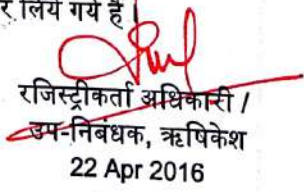 र लिये गये है।
रजिस्ट्रीकर्ता अधिकारी /
उप-निबंधक, ऋषिकेश
22 Apr 2016